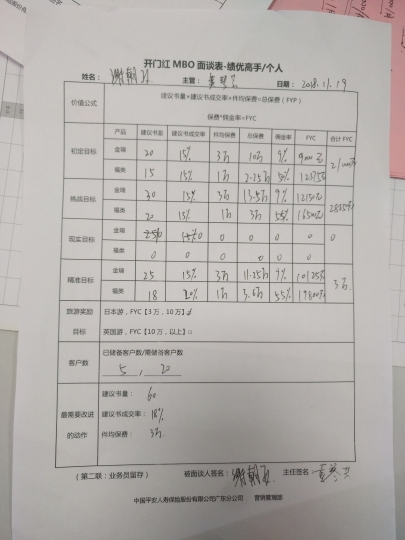 开门红 MBO 面谈表-绩优高手/个人
姓名： 主管： 日期：2018.11.19
价值公式 建议书量*建议书成交率*件均保费=总保费（FYP）
保费*佣金率=FYC
产品 建议书量 建议书成交率 件均保费 总保费 佣金率 FYC 合计 FYC
初定目标 金瑞 20 15% 3万 10万 9% 9000元
福类 15 15% 1万 2.25万 55% 12375元
挑战目标 金瑞 30 15% 3万 13.5万 9% 12150元
福类 20 15% 1万 3万 55% 16500元
现实目标 金瑞 0 0 0 0 0 0
福类 0 0 0 0 0 0
精准目标 金瑞 25 15% 3万 11.25万 9% 10125元 3万
福类 18 20% 1万 3.6万 55% 19800元
旅游奖励 日本游，FYC【3万，10万】☑
目标 英国游，FYC【10万，以上】□
客户数 已储备客户数/需储备客户数
5 ， 20
最需要改进的动作 建议书量： 60
建议书成交率： 18%
件均保费： 3万
（第二联：业务员留存） 被面谈人签名： 主任签名：
中国平安人寿保险股份有限公司广东分公司 营销管理部